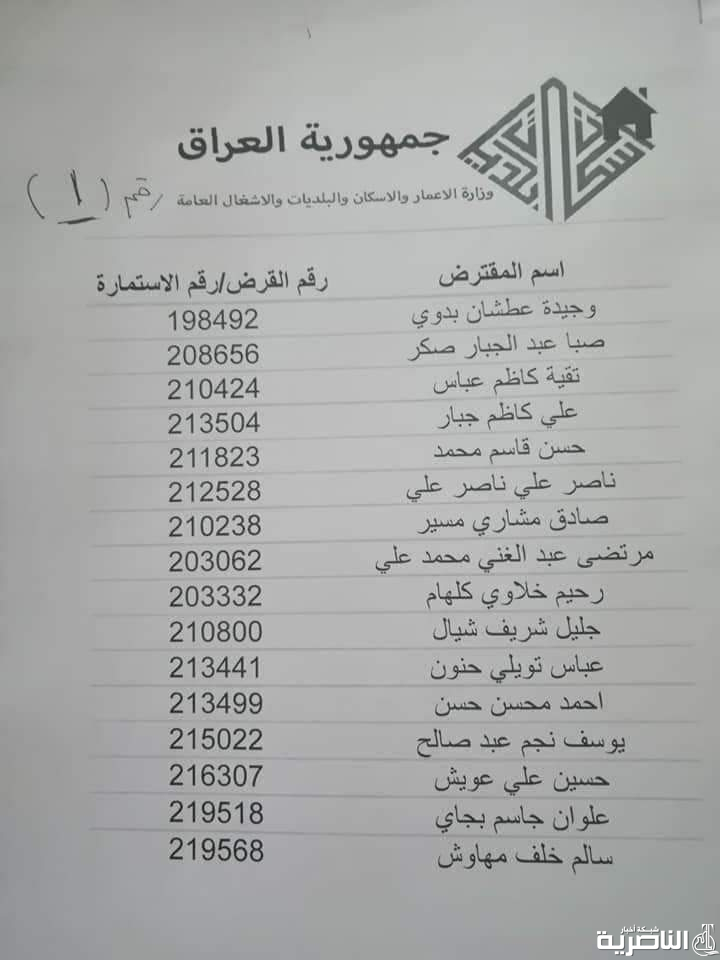 جمهورية العراق
وزارة الاعمار والاسكان والبلديات والاشغال العامة
رقم (١)
اسم المقترض رقم القرض/رقم الاستمارة
وجيدة عطشان بدوي 198492
صبا عبد الجبار صكر 208656
تقية كاظم عباس 210424
علي كاظم جبار 213504
حسن قاسم محمد 211823
ناصر علي ناصر علي 212528
صادق مشاري مسير 210238
مرتضى عبد الغني محمد علي 203062
رحيم خلاوي كلهام 203332
جليل شريف شيال 210800
عباس تويلي حنون 213441
احمد محسن حسن 213499
يوسف نجم عبد صالح 215022
حسين علي عويش 216307
علوان جاسم بجاي 219518
سالم خلف مهاوش 219568
شبكة أخبار
الناصرية